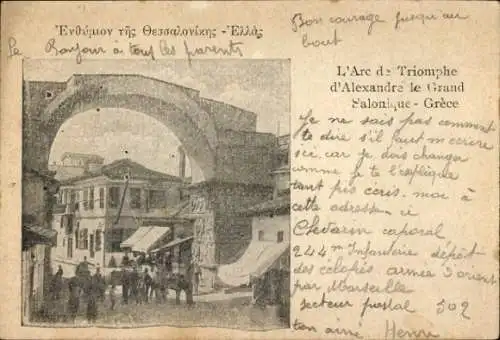 Ἐνθύμιον τῆς Θεσσαλονίκης - Ἑλλάς
Le Bonjour à tous les parents
Bon courage jusqu'au
bout
L'Arc de Triomphe
d'Alexandre le Grand
Salonique - Grèce
Je ne sais pas comment
te dire s'il faut m'ecrire
ici car je dois changer
comme je te l'explique
tant pis ecris moi à
cette adresse ci
caporal
244m Infanterie dépôt
des éclopés armée d'orient
par Marseille
secteur postal 502
ton ainé Henri